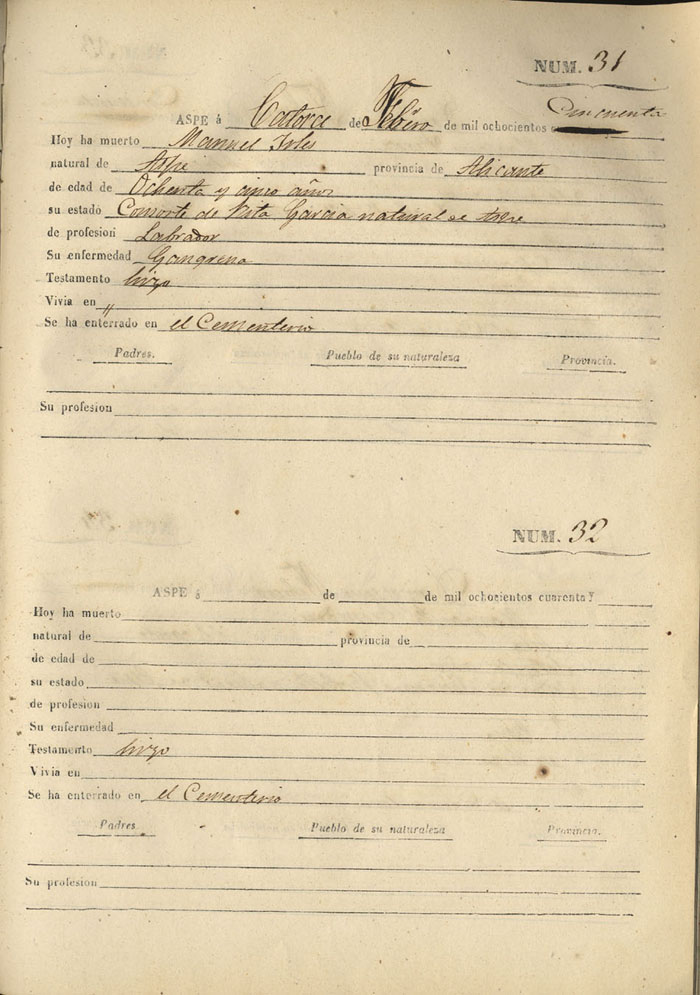 NUM. 31
Cincuenta
ASPE á Catorce de Febiro de mil ochocientos
Hoy ha muerto Manuel Irles
natural de Aspe provincia de Alicante
de edad de Ochenta y cinco años
su estado Consorte de Rita Garcia natural de Aspe
de profesion Labrador
Su enfermedad Gangrena
Testamento hizo
Vivia en "
Se ha enterrado en el Cementerio
Padres. Pueblo de su naturaleza Provincia.
Su profesion
NUM. 32
ASPE á de de mil ochocientos cuarenta y
Hoy ha muerto
natural de provincia de
de edad de
su estado
de profesion
Su enfermedad
Testamento hizo
Vivia en
Se ha enterrado en el Cementerio
Padres. Pueblo de su naturaleza Provincia.
Su profesion